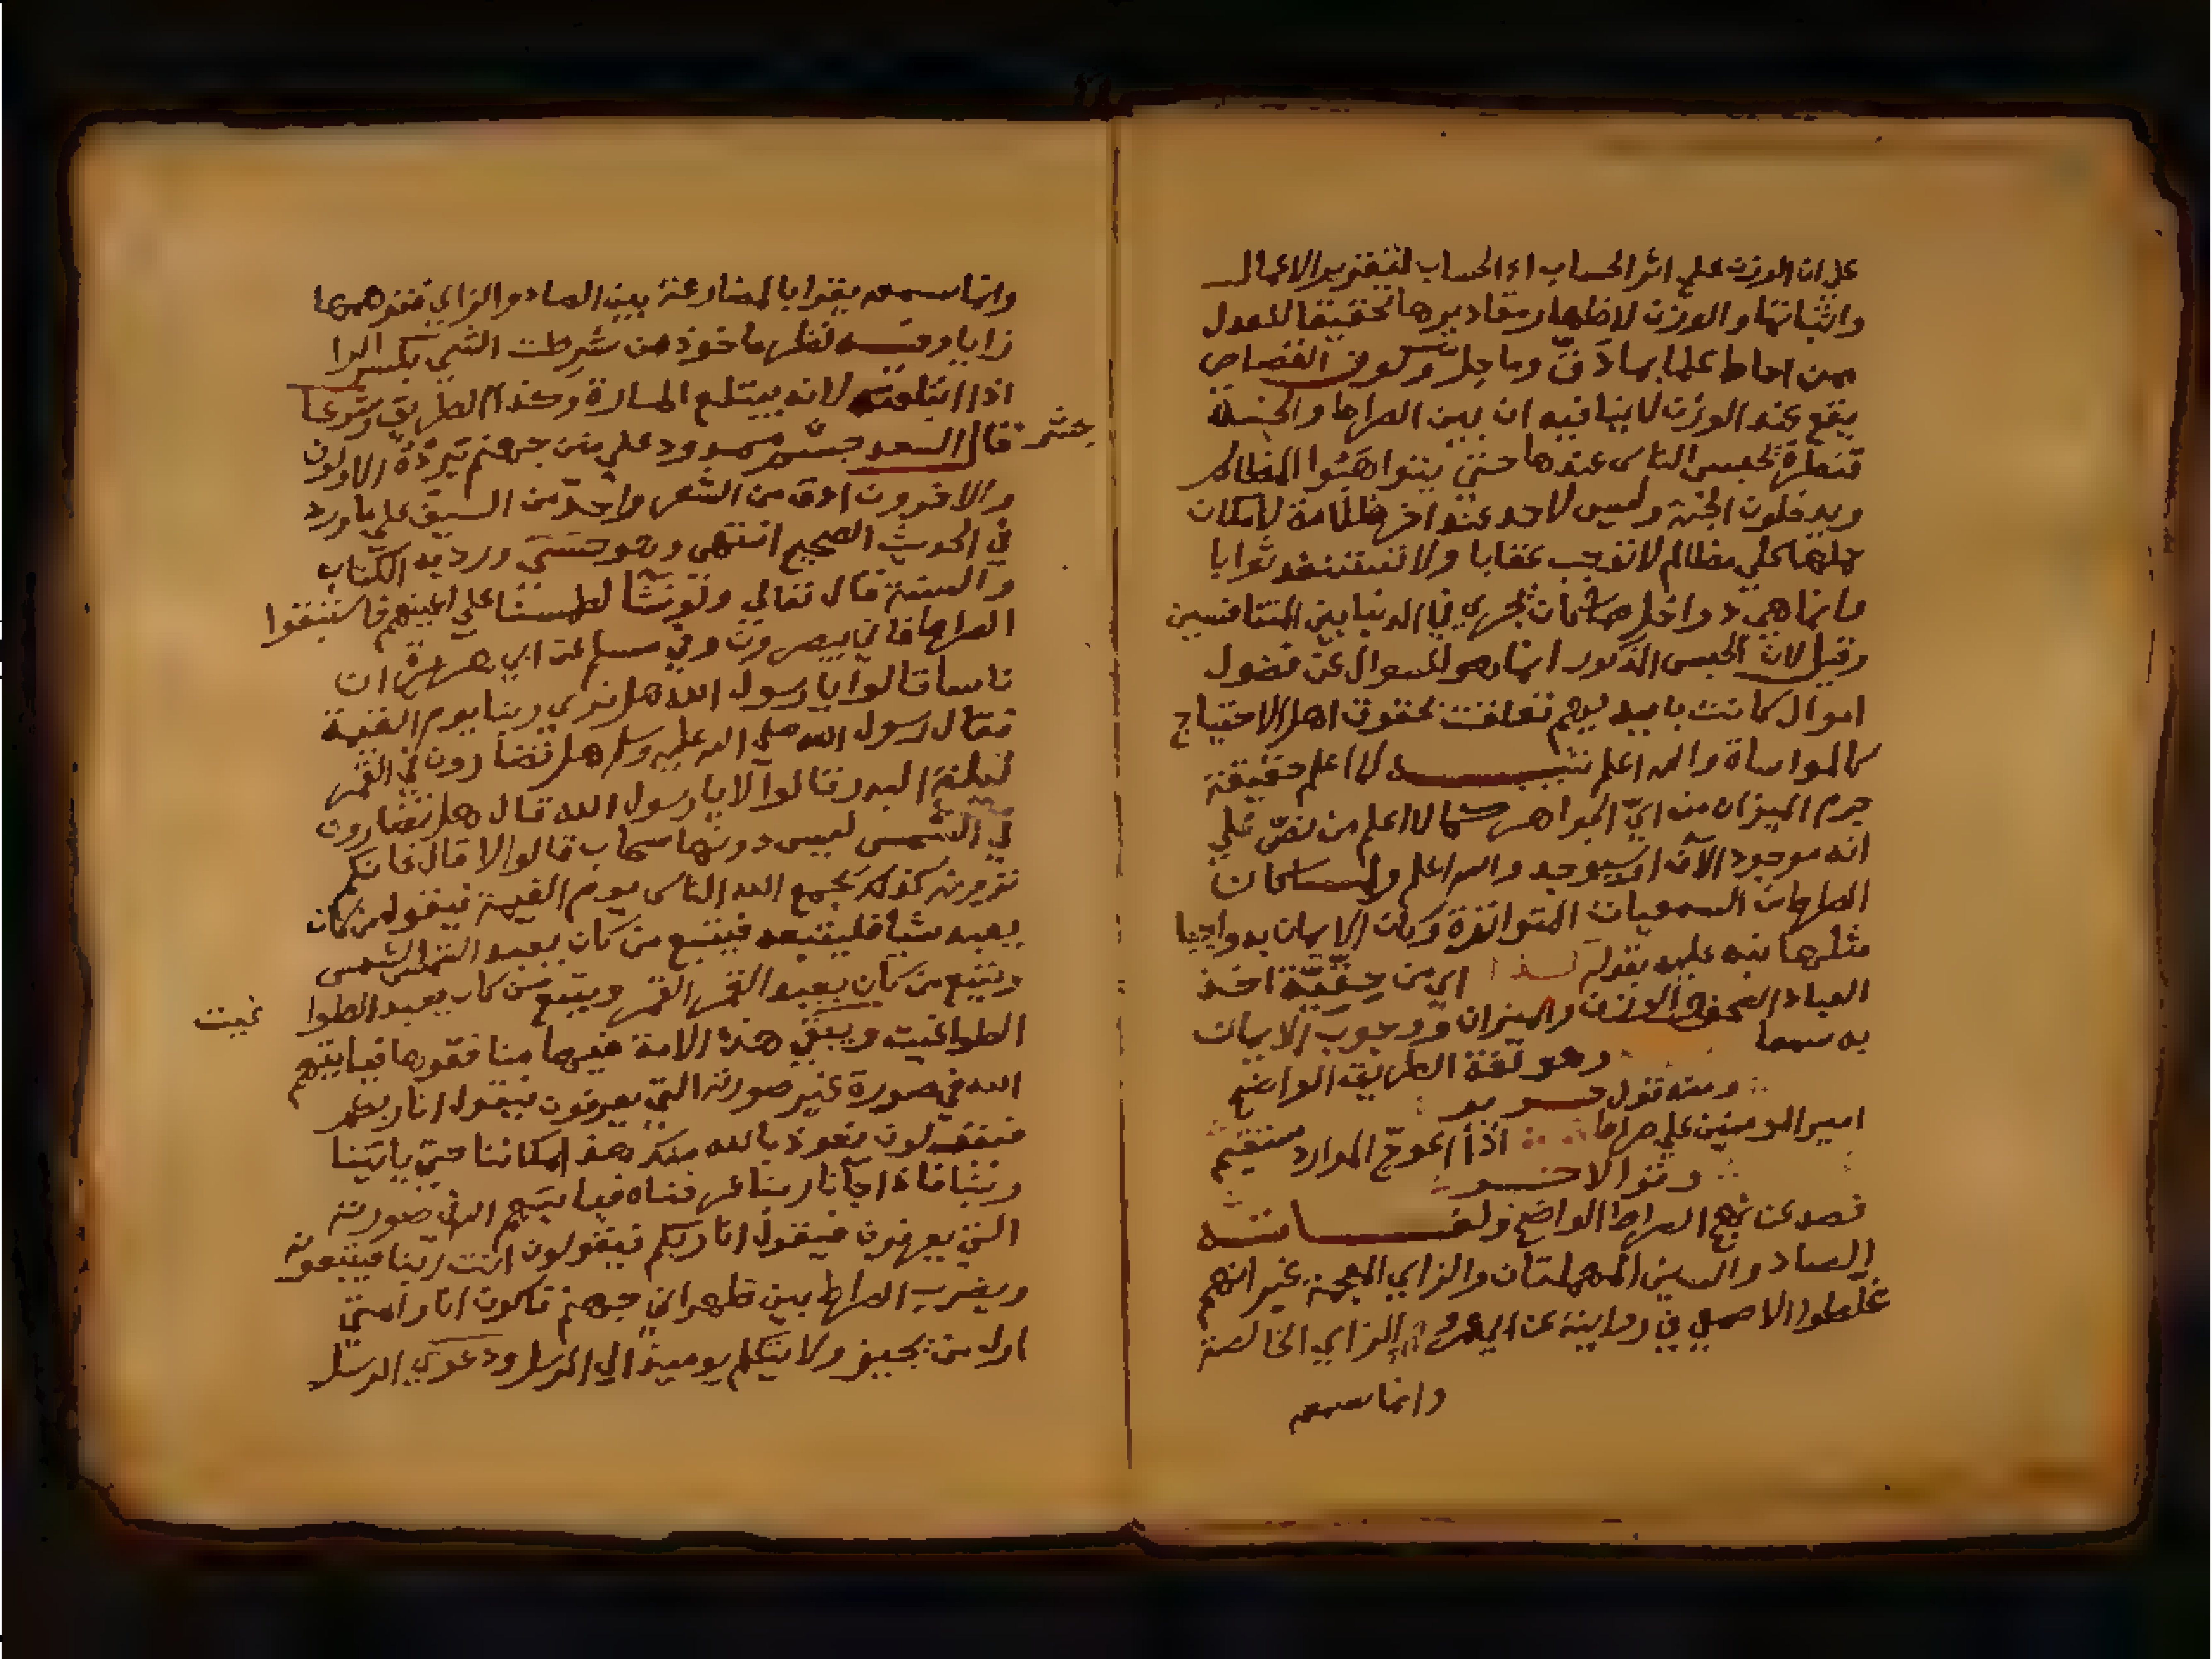 على ان الوزن على اثر الحساب اذ الحساب لتقرير الاعمال
واثباتها والوزن لاظهار مقاديرها تحقيقا للعدل
ممن احاط علما بما دق وما جل وكون القصاص
يقع عند الوزن لا ينافيه ان بين الصراط والجنة
قنطرة تحبس الناس عندها حتى يتواهبوا المظالم
ويدخلون الجنة وليس لاحد عند اخر ظلامة لامكان
حملها على مظالم لا توجب عقابا ولا تقتضي ثوابا
وانما هي دواخل كانت تجري في الدنيا بين المتنافسين
وقيل لان الحبس المذكور انما هو للسوال عن فضول
اموال كانت بايديهم تعلقت بحقوق اهل الاحتياج
كالمواساة والله اعلم تنبيه لا اعلم حقيقة
جرم الميزان من اي الجواهر كما لا اعلم من نص على
انه موجود الآن او سيوجد والله اعلم ولما كان
الصراط من السمعيات المتواترة وكان الايمان به واجبا
مثلها نبه عليه بقوله كذا اي من حقية اخذ
العباد الصحف والوزن والميزان ووجوب الايمان
به سمعا وهو لغة الطريق الواضح
ومنه قول جرير
امير المومنين على صراط اذا اعوج الموارد مستقيم
وقول الاخر
فصد عن نهج الصراط الواضح ولغاته
الصاد والسين المهملتان والزاي المعجمة غير انهم
غلطوا الاصمعي في روايته عن ابي عمرو الزاي الخالصة
وانما سمعه
وانما سمعه يقرا بالمضارعة بين الصاد والزاي فتوهمها
زايا لفظها ماخوذ من شرطت الشي بكسر الرا
اذا ابتلعته لانه يبتلع المارة وكذا الطريق وشرعا
جسر قال السعد جسر ممدود على متن جهنم ترده الاولون
والاخرون ادق من الشعر واحد من السيف على ما ورد
في الحديث الصحيح انتهى وهو حسي ورد به الكتاب
والسنة قال تعالى ولو نشا لطمسنا على اعينهم فاستبقوا
الصراط فانى يبصرون وفي مسلم عن ابي هريرة ان
ناسا قالوا يا رسول الله هل نرى ربنا يوم القيمة
فقال رسول الله صلى الله عليه وسلم هل تضارون في القمر
ليلة البدر قالوا لا يا رسول الله قال هل تضارون
في الشمس ليس دونها سحاب قالوا لا قال فانكم
ترونه كذلك يجمع الله الناس يوم القيمة فيقول من كان
يعبد شيا فليتبعه فيتبع من كان يعبد الشمس الشمس
ويتبع من كان يعبد القمر القمر ويتبع من كان يعبد الطوا غيت
الطواغيت ويبقى هذه الامة فيها منافقوها فياتيهم
الله في صورة غير صورته التي يعرفون فيقول انا ربكم
فيقولون نعوذ بالله منك هذا مكاننا حتى ياتينا
ربنا فاذا جآنا ربنا عرفناه فياتيهم الله في صورته
التي يعرفون فيقول انا ربكم فيقولون انت ربنا فيتبعونه
ويضرب الصراط بين ظهراني جهنم فاكون انا وامتي
اول من يجيز ولا يتكلم يوميذ الا الرسل ودعوى الرسل